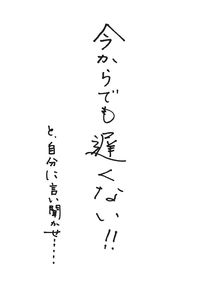 今からでも遅くない!!
と、自分に言い聞かせ……